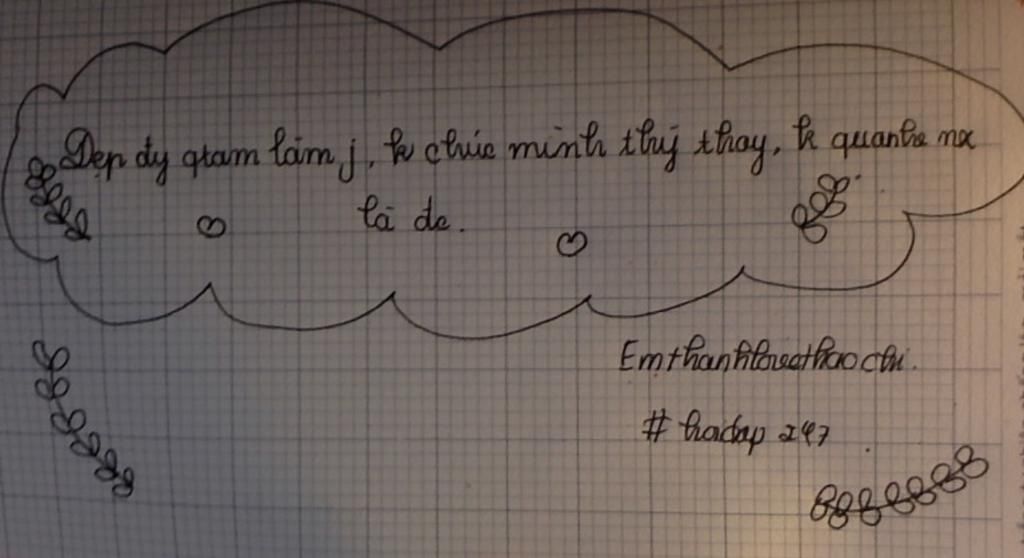 Đẹp dy qtam làm j, k chúc mình thỳ thay, k quantra nx
là dc.
Emthanhlovethaochi.
# hoadap 247